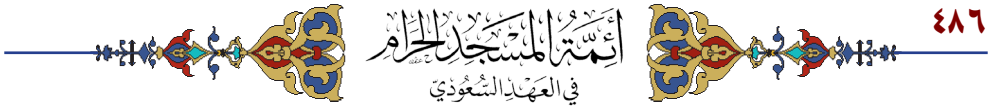 ٤٨٦
أَئِمَّةُ المَسْجِدِ الحَرَامِ
فِي العَهْدِ السُّعُودِيّ